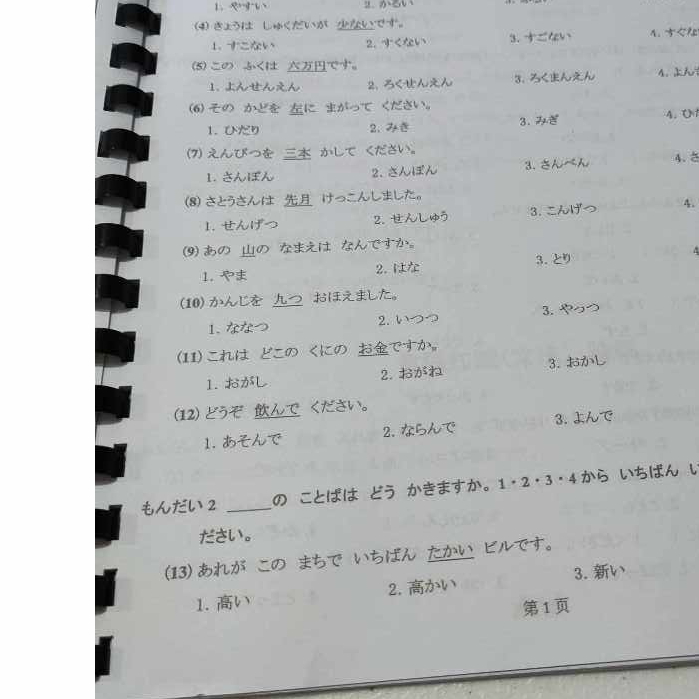 1. やすい 2. かるい
(4) きょうは しゅくだいが 少ないです。
1. すこない 2. すくない 3. すごない 4. すぐな
(5) この ふくは 六万円です。
1. よんせんえん 2. ろくせんえん 3. ろくまんえん 4. よん
(6) その かどを 左に まがって ください。
1. ひだり 2. みき 3. みぎ 4. ひた
(7) えんぴつを 三本 かして ください。
1. さんぼん 2. さんぽん 3. さんぺん 4. さ
(8) さとうさんは 先月 けっこんしました。
1. せんげつ 2. せんしゅう 3. こんげつ 4.
(9) あの 山の なまえは なんですか。
1. やま 2. はな 3. とり 4
(10) かんじを 九つ おぼえました。
1. ななつ 2. いつつ 3. やっつ
(11) これは どこの くにの お金ですか。
1. おがし 2. おがね 3. おかし
(12) どうぞ 飲んで ください。
1. あそんで 2. ならんで 3. よんで
もんだい2 _____の ことばは どう かきますか。1・2・3・4から いちばん い
ださい。
(13) あれが この まちで いちばん たかい ビルです。
1. 高い 2. 高かい 3. 新い
第1页